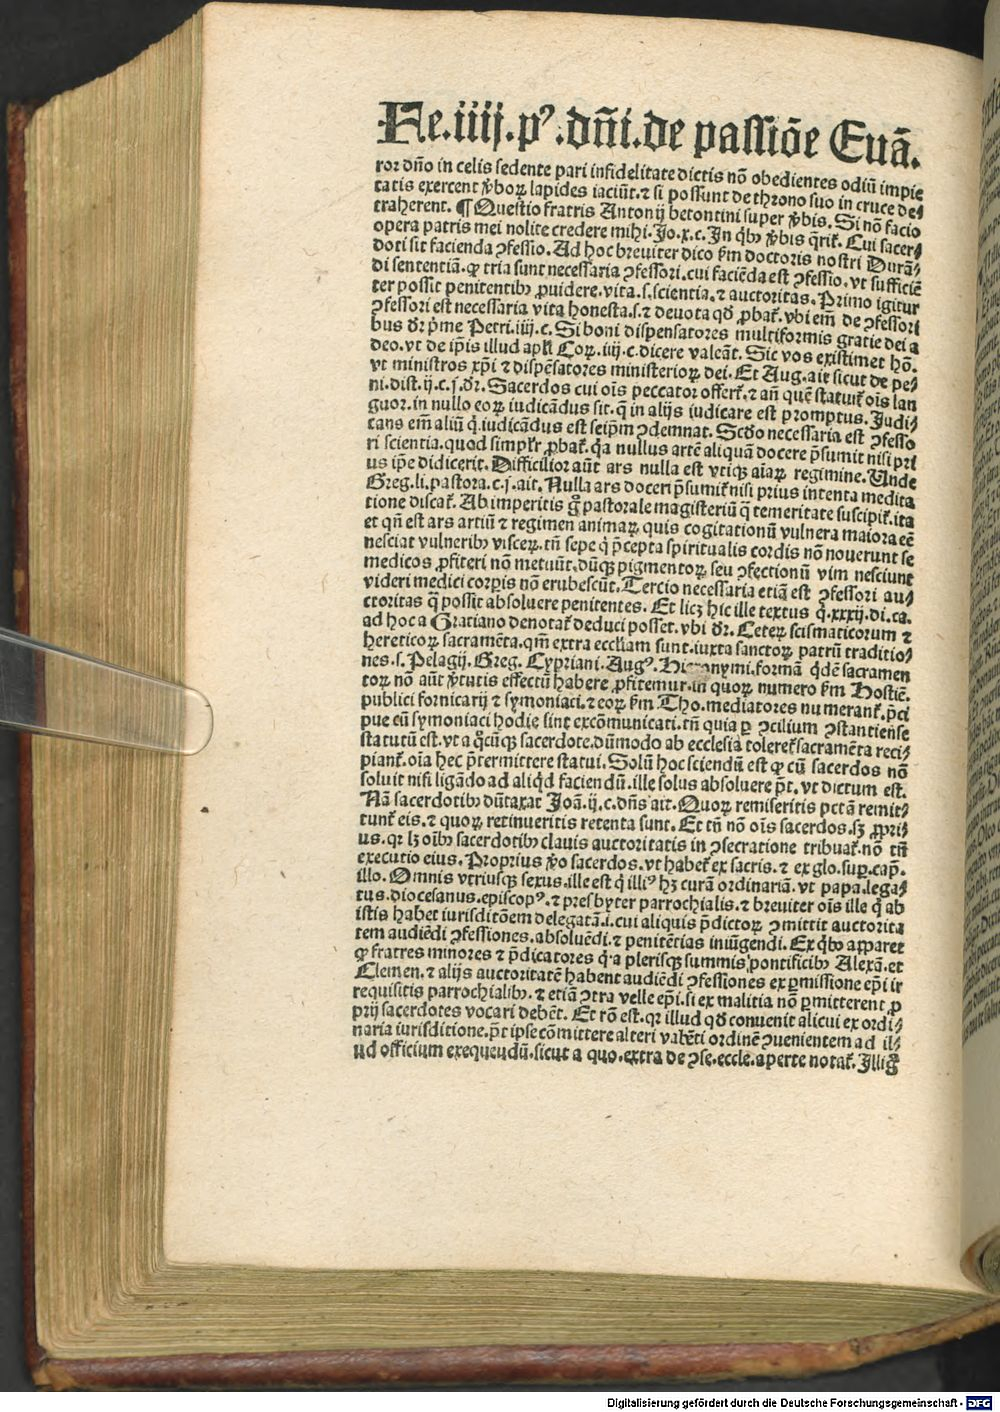 Fe.iiij.pꝰ.dñi.de passiõe Euã.
ror dño in celis sedente pari infidelitate dictis nõ obedientes odiũ impie
tatis exercent ꝟboꝝ lapides iaciũt.⁊ si possunt de throno suo in cruce de⸗
traherent. ¶ Questio fratris Antonij betontini super ꝟbis. Si nõ facio
opera patris mei nolite credere mihi. Jo.x.c. In qͥbꝫ ꝟbis q̃rit̃. Cui sacer⸗
doti sit facienda ꝯfessio. Ad hoc breuiter dico ẜm doctoris nostri Durã⸗
di sententiã. ꝙ tria sunt necessaria ꝯfessori.cui faciẽda est ꝯfessio.vt sufficiẽ
ter possit penitentibꝫ ꝓuidere.vita.s.scientia.⁊ auctoritas. Primo igitur
ꝯfessori est necessaria vita honesta.s.⁊ deuota qđ ꝓbat̃.vbi em̃ de ꝯfessori
bus dr̃ pͥme Petri.iiij.c. Si boni dispensatores multiformis gratie dei a
deo.vt de ip̃is illud apl̃i Coꝝ.iiij.c.dicere valeãt. Sic vos existimet hõ.
vt ministros xp̃i ⁊ dispẽsatores ministerioꝝ dei. Et Aug.ait sicut de pe⸗
ni.dist.ij.c.j.dr̃. Sacerdos cui oĩs peccator offert̃.⁊ añ quẽ statuit̃ oĩs lan
guor.in nullo eoꝝ iudicãdus sit.q̃ in alijs iudicare est promptus. Judi⸗
cans em̃ aliũ qͥ iudicãdus est seip̃m ꝯdemnat. Scďo necessaria est ꝯfesso
ri scientia.quod simpl̃r ꝓbat̃.qͥa nullus artẽ aliquã docere p̃sumit nisi pri
us ip̃e didicerit. Difficilior aũt ars nulla est vtiqꝫ aĩaꝝ regimine. Unde
Greg.li.pastora.c.j.ait. Nulla ars doceri p̃sumit̃ nisi prius intenta medita
tione discat̃. Ab imperitis g̃ pastorale magisteriũ q̃ temeritate suscipit̃.ita
et qñ est ars artiũ ⁊ regimen animaꝝ.quis cogitationũ vulnera maiora eẽ
nesciat vulneribꝫ visceꝝ.tñ sepe qͥ p̃cepta spiritualis cordis nõ nouerunt se
medicos ꝓfiteri nõ metuũt.dũqꝫ pigmentoꝝ seu ꝯfectionũ vim nesciunt
videri medici corpis nõ erubescũt. Tercio necessaria etiã est ꝯfessori au⸗
ctoritas q̃ possit absoluere penitentes. Et licꝫ hic ille textus q̃.xxxij.di.ca.
ad hoc a Graciano denotat̃ deduci posset.vbi dr̃. Ceteꝝ scismaticorum ⁊
hereticoꝝ sacramẽta.qm̃ extra eccl̃iam sunt.iuxta sanctoꝝ patrũ traditio⸗
nes.s. Pelagij. Greg. Cypriani. Augꝰ. Hieronymi.formã qͥdẽ sacramen
toꝝ nõ aũt ꝟtutis effectũ habere ꝓfitemur.in quoꝝ numero ẜm Hostiẽ.
publici fornicarij ⁊ symoniaci.⁊ eoꝝ ẜm Tho.mediatores numerant̃.p̃ci
pue cũ symoniaci hodie sint excõmunicati.tñ quia ꝑ ꝯcilium ꝯstantiense
statutũ est.vt a qͥcũqꝫ sacerdote.dũmodo ab ecclesia toleret̃ sacramẽta reci⸗
piant̃.oĩa hec p̃termittere statui. Solũ hoc sciendũ est ꝙ cũ sacerdos nõ
soluit nisi ligãdo ad aliqͥd faciendũ.ille solus absoluere p̃t.vt dictum est.
Nã sacerdotibꝫ dũtaxat Joã.ij.c.dñs ait. Quoꝝ remiseritis pctã remit⸗
tunt̃ eis.⁊ quoꝝ retinueritis retenta sunt. Et tñ nõ oĩs sacerdos.sꝫ ꝓpri⸗
us.qꝛ lꝫ oĩbꝫ sacerdotibꝫ clauis auctoritatis in ꝯsecratione tribuat̃.nõ tñ
executio eius. Proprius ꝟo sacerdos.vt habet̃ ex sacris.⁊ ex glo.suꝑ.cap.
illo. Omnis vtriusqꝫ sexus.ille est qͥ illiꝰ hꝫ curã ordinariã.vt papa.lega⸗
tus.diocesanus.episcopꝰ.⁊ presbyter parrochialis.⁊ breuiter oĩs ille qͥ ab
istis habet iurisditõem delegatã.i.cui aliquis p̃dictoꝝ ꝯmittit auctorita
tem audiẽdi ꝯfessiones.absoluẽdi.⁊ penitẽtias iniũgendi. Ex qͥbꝫ apparet
ꝙ fratres minores ⁊ p̃dicatores qͥ a plerisqꝫ summis pontificibꝫ Alexã.et
Clemen.⁊ alijs auctoritatẽ habent audiẽdi ꝯfessiones ex ꝑmissione ep̃i ir
requisitis parrochialibꝫ.⁊ etiã ꝯtra velle ep̃i.si ex malitia nõ ꝑmitterent ꝓ
prij sacerdotes vocari debẽt. Et rõ est.qꝛ illud qđ conuenit alicui ex ordi⸗
naria iurisditione.p̃t ipse cõmittere alteri valẽti ordinẽ ꝯuenientem ad il⸗
lud officium exequendũ.sicut a quo.extra de ꝯse.eccle.aperte notat̃. Illi g̃
Digitalisierung gefördert durch die Deutsche Forschungsgemeinschaft - DFG